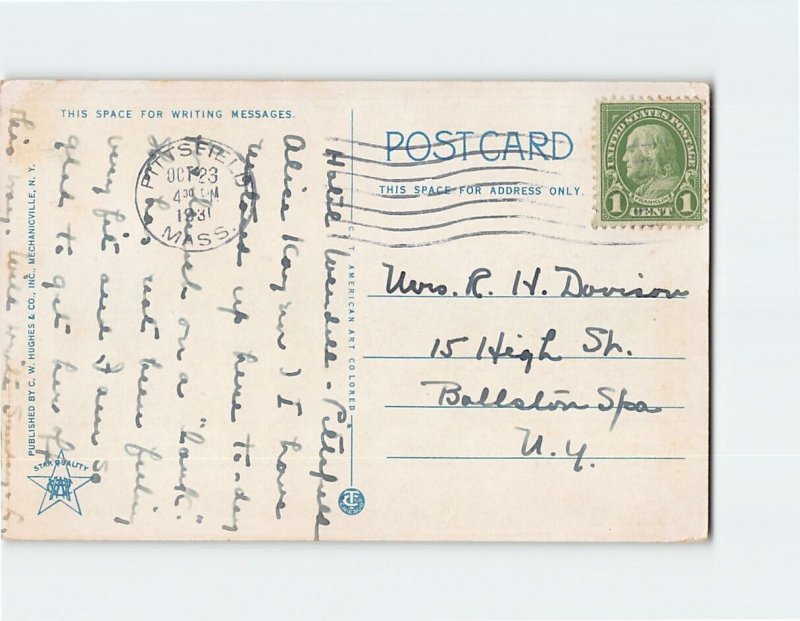 THIS SPACE FOR WRITING MESSAGES.
POST CARD
THIS SPACE FOR ADDRESS ONLY.
UNITED STATES POSTAGE
FRANKLIN
1 CENT 1
PITTSFIELD
OCT 23
4 30 PM
1931
MASS.
Hotel Wendell - Pittsfield
Alice Kay and I have
up here to-day
lunch on a "bank".
has not been feeling
very fit and I am so
glad to get her off
this way. Will write Sunday.
Mrs. R. H. Davison
15 High St.
Ballston Spa
N.Y.
PUBLISHED BY C. W. HUGHES & CO., INC., MECHANICVILLE, N. Y.
C. T. AMERICAN ART COLORED
STAR QUALITY
CT
CHICAGO